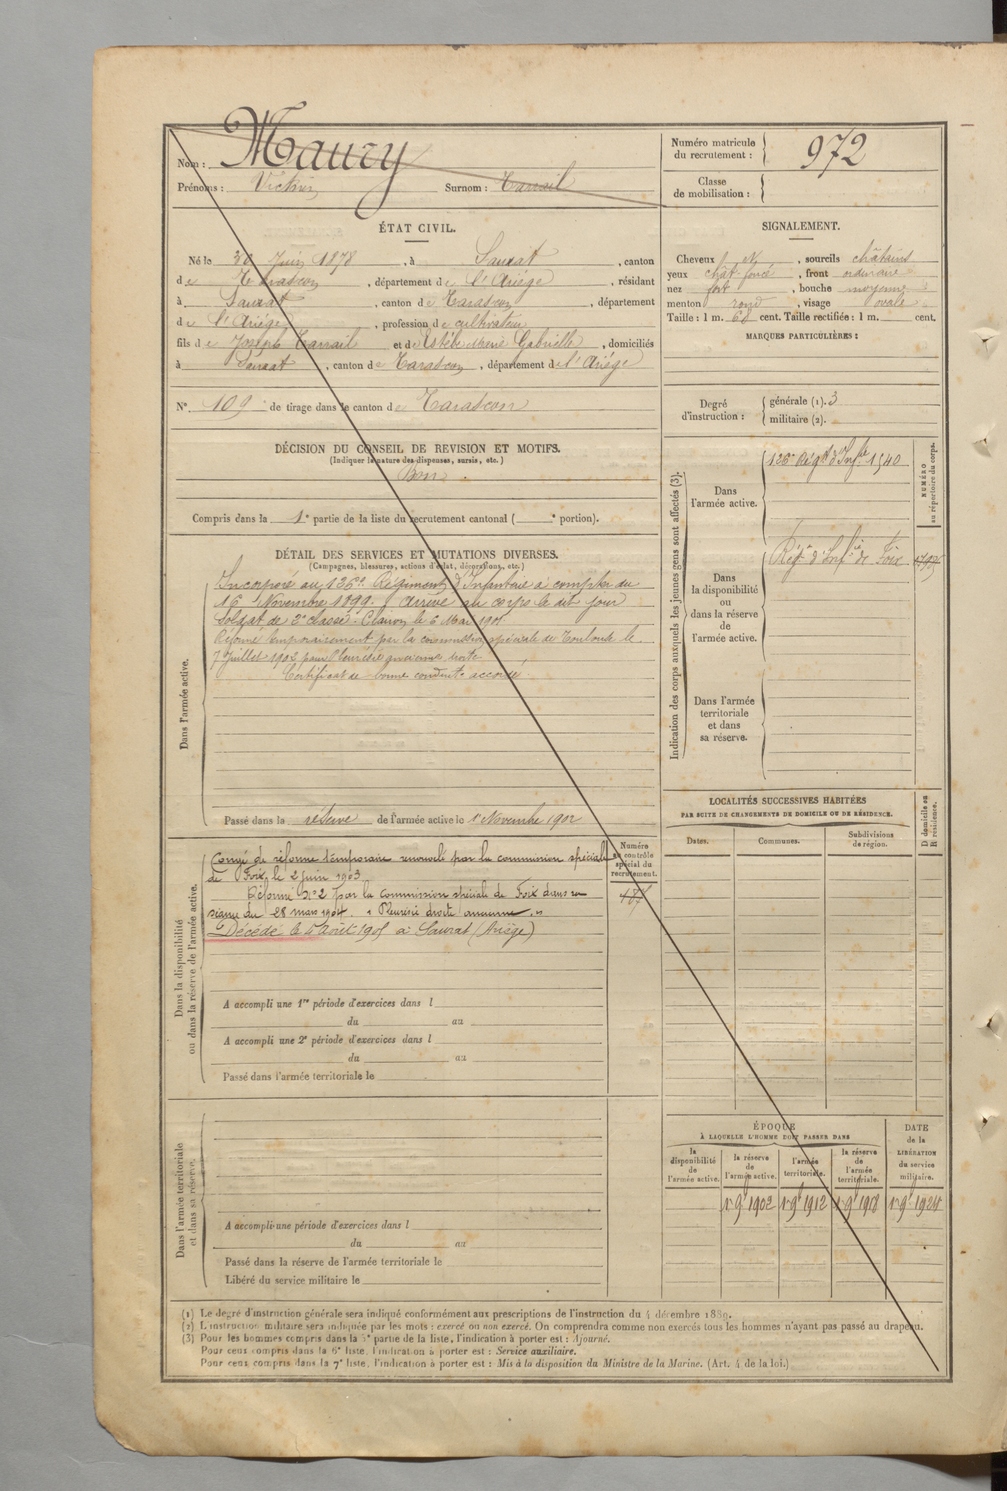 Nom : Maury
Prénoms : Victor Surnom : Tarrail
Numéro matricule du recrutement : 972
Classe de mobilisation :
ÉTAT CIVIL.
Né le 30 Juin 1878, à Saurat, canton
de Tarascon, département de l'Ariège, résidant
à Saurat, canton de Tarascon, département
de l'Ariège, profession de cultivateur
fils de Joseph Tarrail et de Estèbe Marie Gabrielle, domiciliés
à Saurat, canton de Tarascon, département de l'Ariège
N° 109 de tirage dans le canton de Tarascon
SIGNALEMENT.
Cheveux N, sourcils châtains
yeux chât. foncé, front ordinaire
nez fort, bouche moyenne
menton rond, visage ovale
Taille : 1 m. 68 cent. Taille rectifiée : 1 m. cent.
MARQUES PARTICULIÈRES :
Degré d'instruction : générale (1). 3
militaire (2).
DÉCISION DU CONSEIL DE REVISION ET MOTIFS.
(Indiquer la nature des dispenses, sursis, etc.)
Bon.
Compris dans la 1e partie de la liste du recrutement cantonal ( e portion).
DÉTAIL DES SERVICES ET MUTATIONS DIVERSES.
(Campagnes, blessures, actions d'éclat, décorations, etc.)
Dans l'armée active.
Incorporé au 126e Régiment d'Infanterie à compter du
16 Novembre 1899. Arrivé au corps le dit jour
Soldat de 2e classe. Clairon le 6 Mai 1901
Réformé temporairement par la commission spéciale de Toulouse le
7 Juillet 1902 pour Pleurésie ancienne droite
Certificat de bonne conduite accordé
Passé dans la réserve de l'armée active le 1r Novembre 1902
Dans la disponibilité ou dans la réserve de l'armée active.
Numéro au contrôle spécial du recrutement.
Congé de réforme temporaire renouvelé par la commission spéciale
de Foix le 2 juin 1903
Réformé N° 2 par la commission spéciale de Foix dans sa
séance du 28 mars 1904. « Pleurésie droite ancienne. »
Décédé le 4 août 1905 à Saurat (Ariège)
A accompli une 1re période d'exercices dans l
du au
A accompli une 2e période d'exercices dans l
du au
Passé dans l'armée territoriale le
Dans l'armée territoriale et dans sa réserve.
A accompli une période d'exercices dans l
du au
Passé dans la réserve de l'armée territoriale le
Libéré du service militaire le
Indication des corps auxquels les jeunes gens sont affectés (3).
NUMÉRO au répertoire du corps.
Dans l'armée active.
126e Régt d'Infie 1540
Dans la disponibilité ou dans la réserve de l'armée active.
Régt d'Infie de Foix
Dans l'armée territoriale et dans sa réserve.
LOCALITÉS SUCCESSIVES HABITÉES
PAR SUITE DE CHANGEMENTS DE DOMICILE OU DE RÉSIDENCE.
Dates. Communes. Subdivisions de région. D domicile ou R résidence.
ÉPOQUE
À LAQUELLE L'HOMME DOIT PASSER DANS
la disponibilité de l'armée active.
la réserve de l'armée active.
l'armée territoriale.
la réserve de l'armée territoriale.
DATE de la LIBÉRATION du service militaire.
1r 9bre 1902 1r 9bre 1912 1r 9bre 1918 1r 9bre 1924
(1) Le degré d'instruction générale sera indiqué conformément aux prescriptions de l'instruction du 4 décembre 1889.
(2) L'instruction militaire sera indiquée par les mots : exercé ou non exercé. On comprendra comme non exercés tous les hommes n'ayant pas passé au drapeau.
(3) Pour les hommes compris dans la 5e partie de la liste, l'indication à porter est : Ajourné.
Pour ceux compris dans la 6e liste, l'indication à porter est : Service auxiliaire.
Pour ceux compris dans la 7e liste, l'indication à porter est : Mis à la disposition du Ministre de la Marine. (Art. 4 de la loi.)